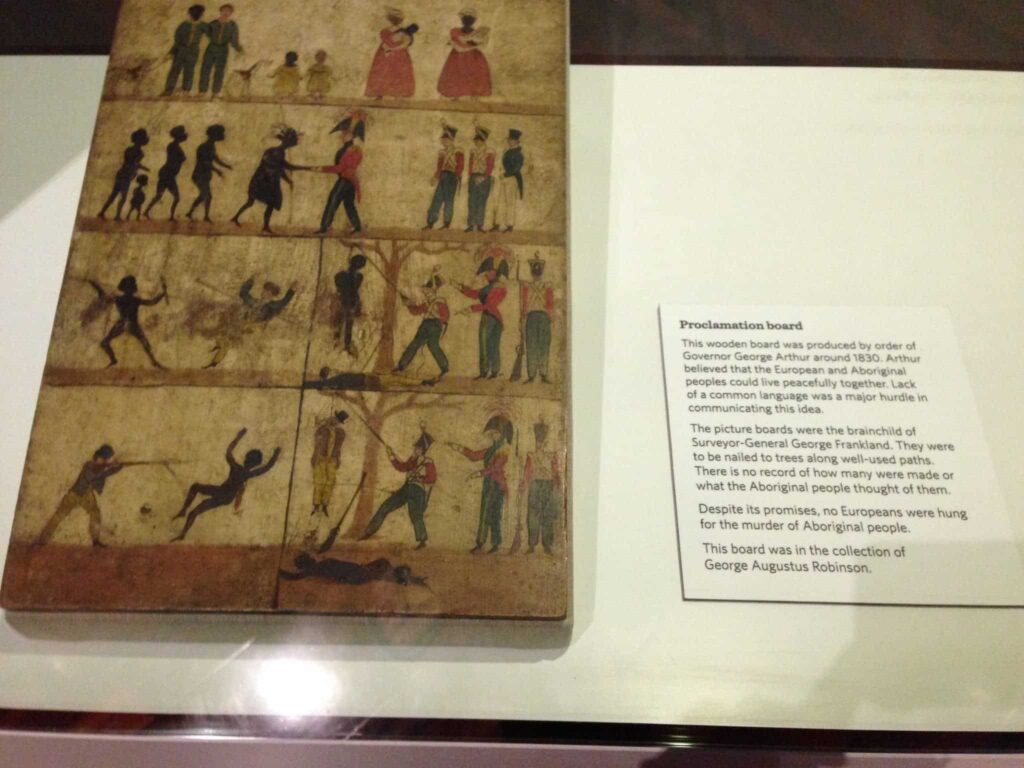 Proclamation board
This wooden board was produced by order of
Governor George Arthur around 1830. Arthur
believed that the European and Aboriginal
peoples could live peacefully together. Lack
of a common language was a major hurdle in
communicating this idea.
The picture boards were the brainchild of
Surveyor-General George Frankland. They were
to be nailed to trees along well-used paths.
There is no record of how many were made or
what the Aboriginal people thought of them.
Despite its promises, no Europeans were hung
for the murder of Aboriginal people.
This board was in the collection of
George Augustus Robinson.